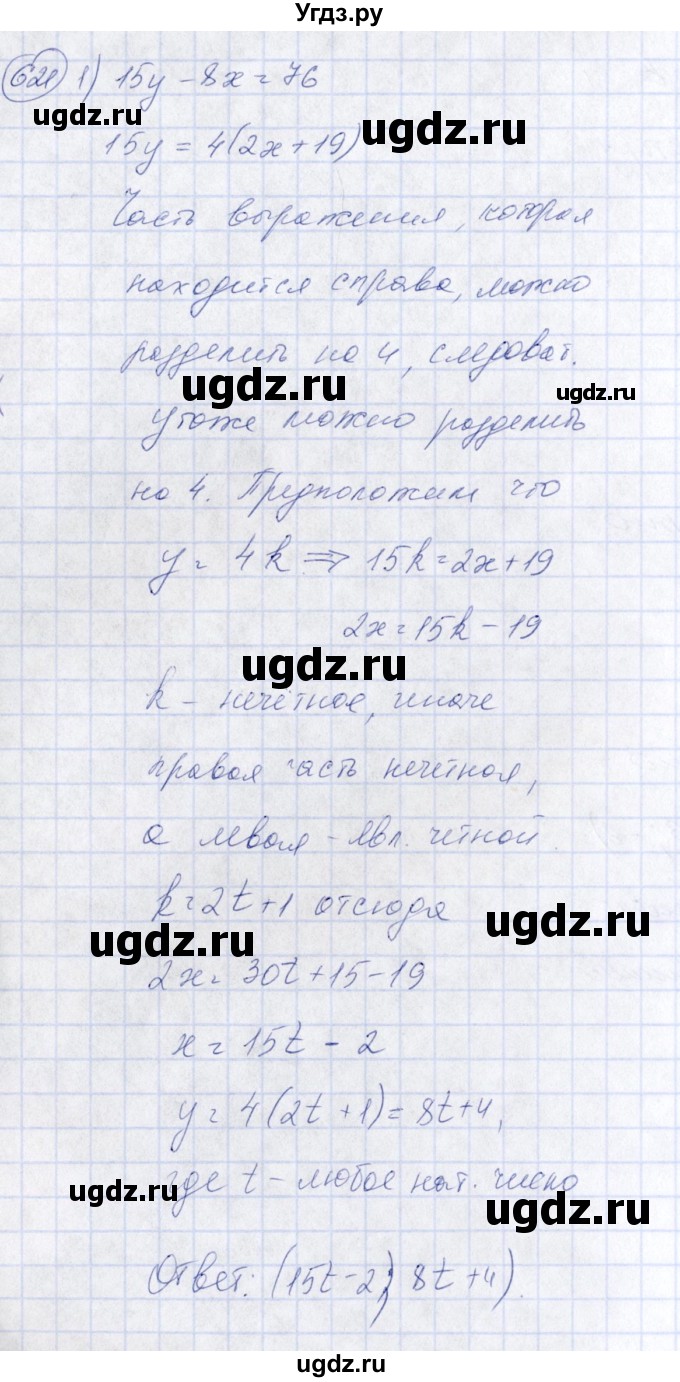 Угдз.ру
621 1) 15y - 8x = 76
ugdz.ru
15y = 4(2x + 19) ugdz.ru
Часть выражения, которая
находится справа, можно
разделить на 4, следоват.
ugdz.ru
y тоже можно разделить
на 4. Предположим что
y = 4k ⇒ 15k = 2x + 19
2x = 15k - 19
ugdz.ru
k - нечётное, иначе
правая часть нечетная,
а левая - явл. чётной
k = 2t + 1 отсюда
ugdz.ru
ugdz.ru
2x = 30t + 15 - 19
x = 15t - 2
y = 4(2t + 1) = 8t + 4,
где t - любое нат. число
ugdz.ru
ugdz.ru
Ответ: (15t - 2; 8t + 4).
ugdz.ru